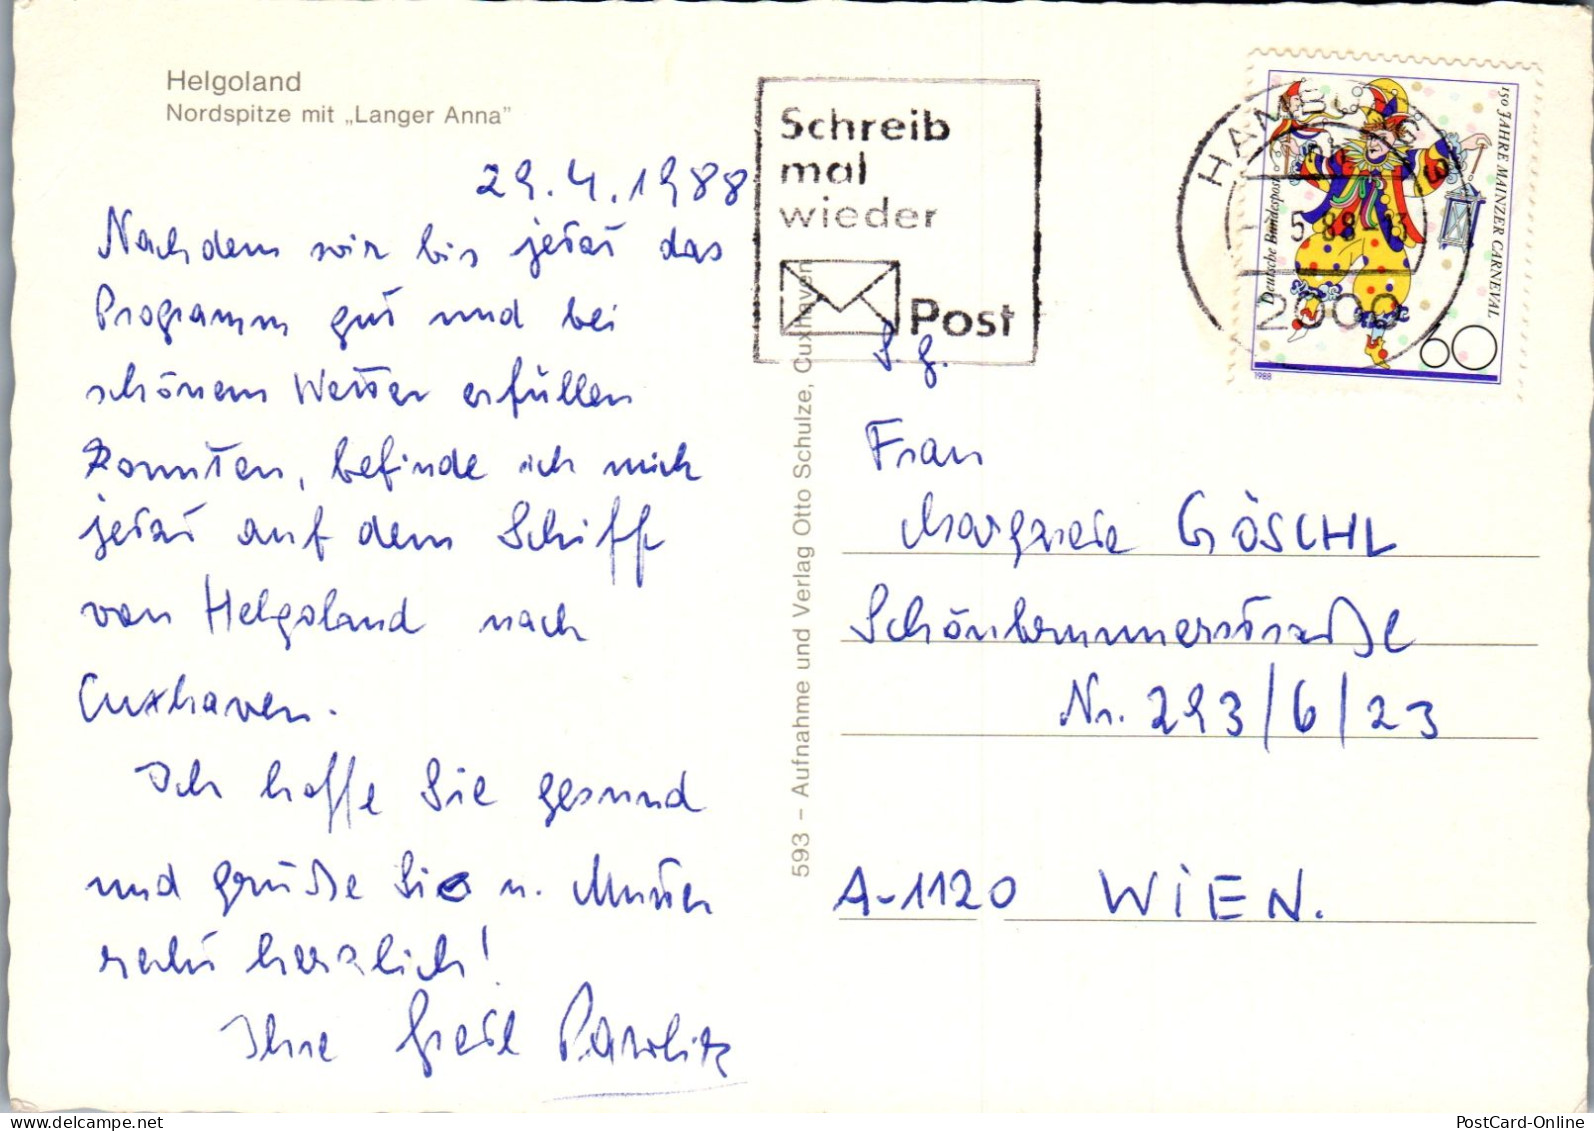 Helgoland
Nordspitze mit „Langer Anna”
29.4.1988
Nachdem wir bis jetzt das
Programm gut und bei
schönem Wetter erfüllen
konnten, befinde ich mich
jetzt auf dem Schiff
von Helgoland nach
Cuxhaven.
Ich hoffe Sie gesund
und grüße Sie u. Mutter
recht herzlich!
Ihre Gretl
593 – Aufnahme und Verlag Otto Schulze, Cuxhaven
Schreib
mal
wieder
Post
HAMBURG
5.88-13
2000
Deutsche Bundespost
150 JAHRE MAINZER CARNEVAL
60
1988
S. g.
Frau
Margarete GÖSCHL
Schönbrunnerstraße
Nr. 293/6/23
A-1120 WIEN.
PostCard-Online